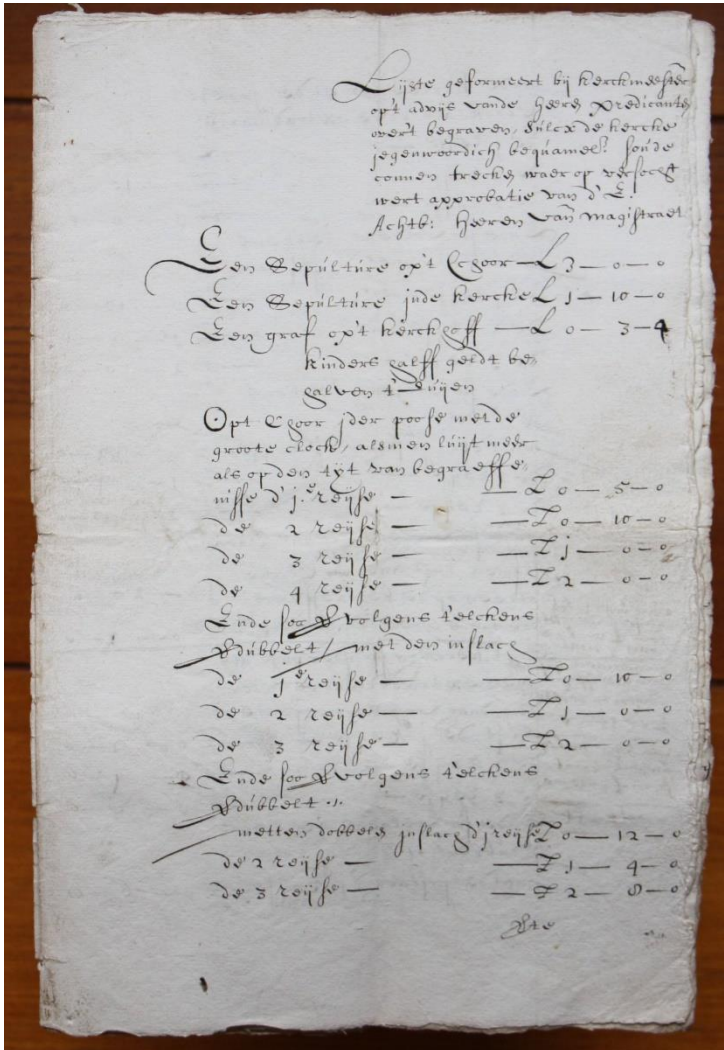 Lijste geformeert bij kerckmeesters
opt advijs vande heeren predicanten
overt begraven, sulcx de kercke
jegenwoordich bequamel: soude
connen trecken, waer op versocht
wert approbatie van d' E.
Achtb: heeren van magistraet
Een Sepulture opt Choor — L 3 — 0 — 0
Een Sepulture inde kercke L 1 — 10 — 0
Een graf opt kerckhoff — L 0 — 3 — 4
kinders halff geldt be
halven t' luijen
Opt Choor ider poose metde
groote clock, alsmen luijt meer
als op den tijt van begraeffe
nisse d' j.e reijse — — L 0 — 5 — 0
de 2 reijse — — L 0 — 10 — 0
de 3 reijse — — L j — 0 — 0
de 4 reijse — — L 2 — 0 — 0
Ende soo vervolgens t'elckens
verdubbelt / met den inslach
de je reijse — — L 0 — 10 — 0
de 2 reijse — — L j — 0 — 0
de 3 reijse — — L 2 — 0 — 0
Ende soo vervolgens t'elckens
verdubbelt .
metten dobbelen inslach d' j reijse L 0 — 12 — 0
de 2 reijse — — L j — 4 — 0
de 3 reijse — — L 2 — 8 — 0